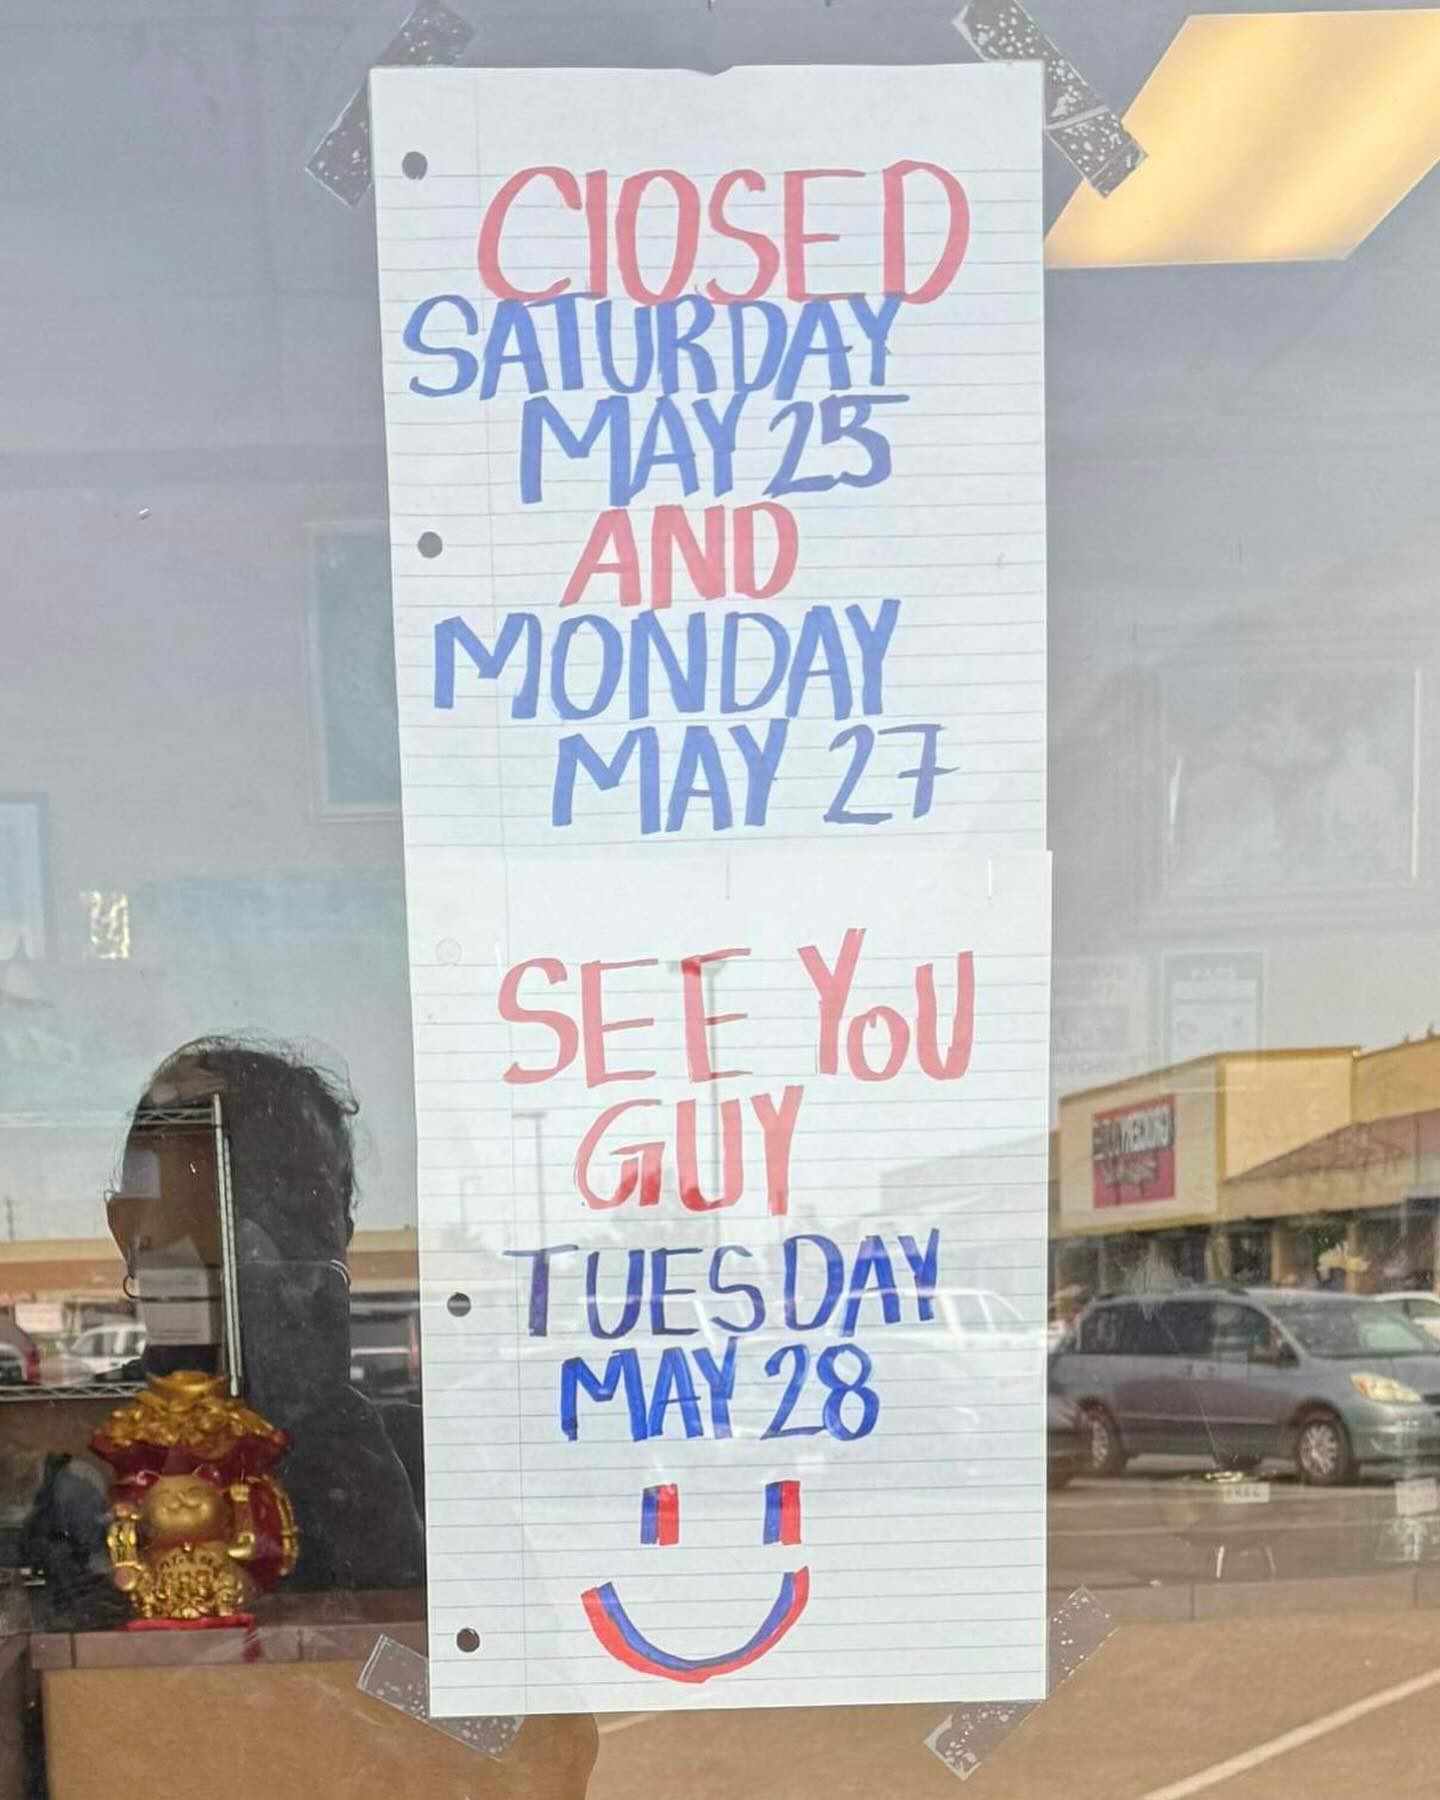 ClOSED
SATURDAY
MAY 25
AND
MONDAY
MAY 27
SEE YoU
GUY
TUESDAY
MAY 28